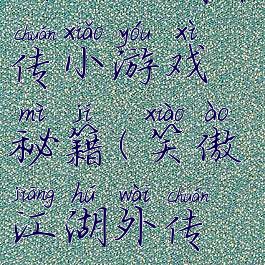 chuán xiǎo yóu xì
传小游戏
mì jí xiào ào
秘籍(笑傲
jiāng hú wài chuán
江湖外传